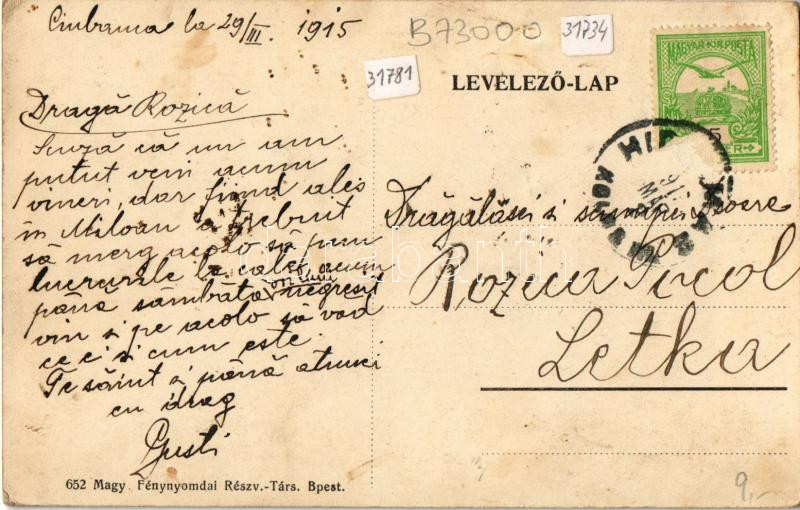 Ciubanca la 29/III. 1915
B73000
31734
31781
LEVELEZŐ-LAP
MAGYAR KIR. POSTA
5
Dragă Rozică
Scuză că nu am
putut veni acum
vineri, dar fiind ales
în Miloan a trebuit
să merg acolo să pun
lucrurile la cale, acum
până sâmbăta negreșit
vin și pe acolo să văd
ce e și cum este.
Te săint și până atunci
cu drag
Gusti
Drăgălășei și
Rozica
Letka
652 Magy. Fénynyomdai Részv.-Társ. Bpest.
9,-
darabanth